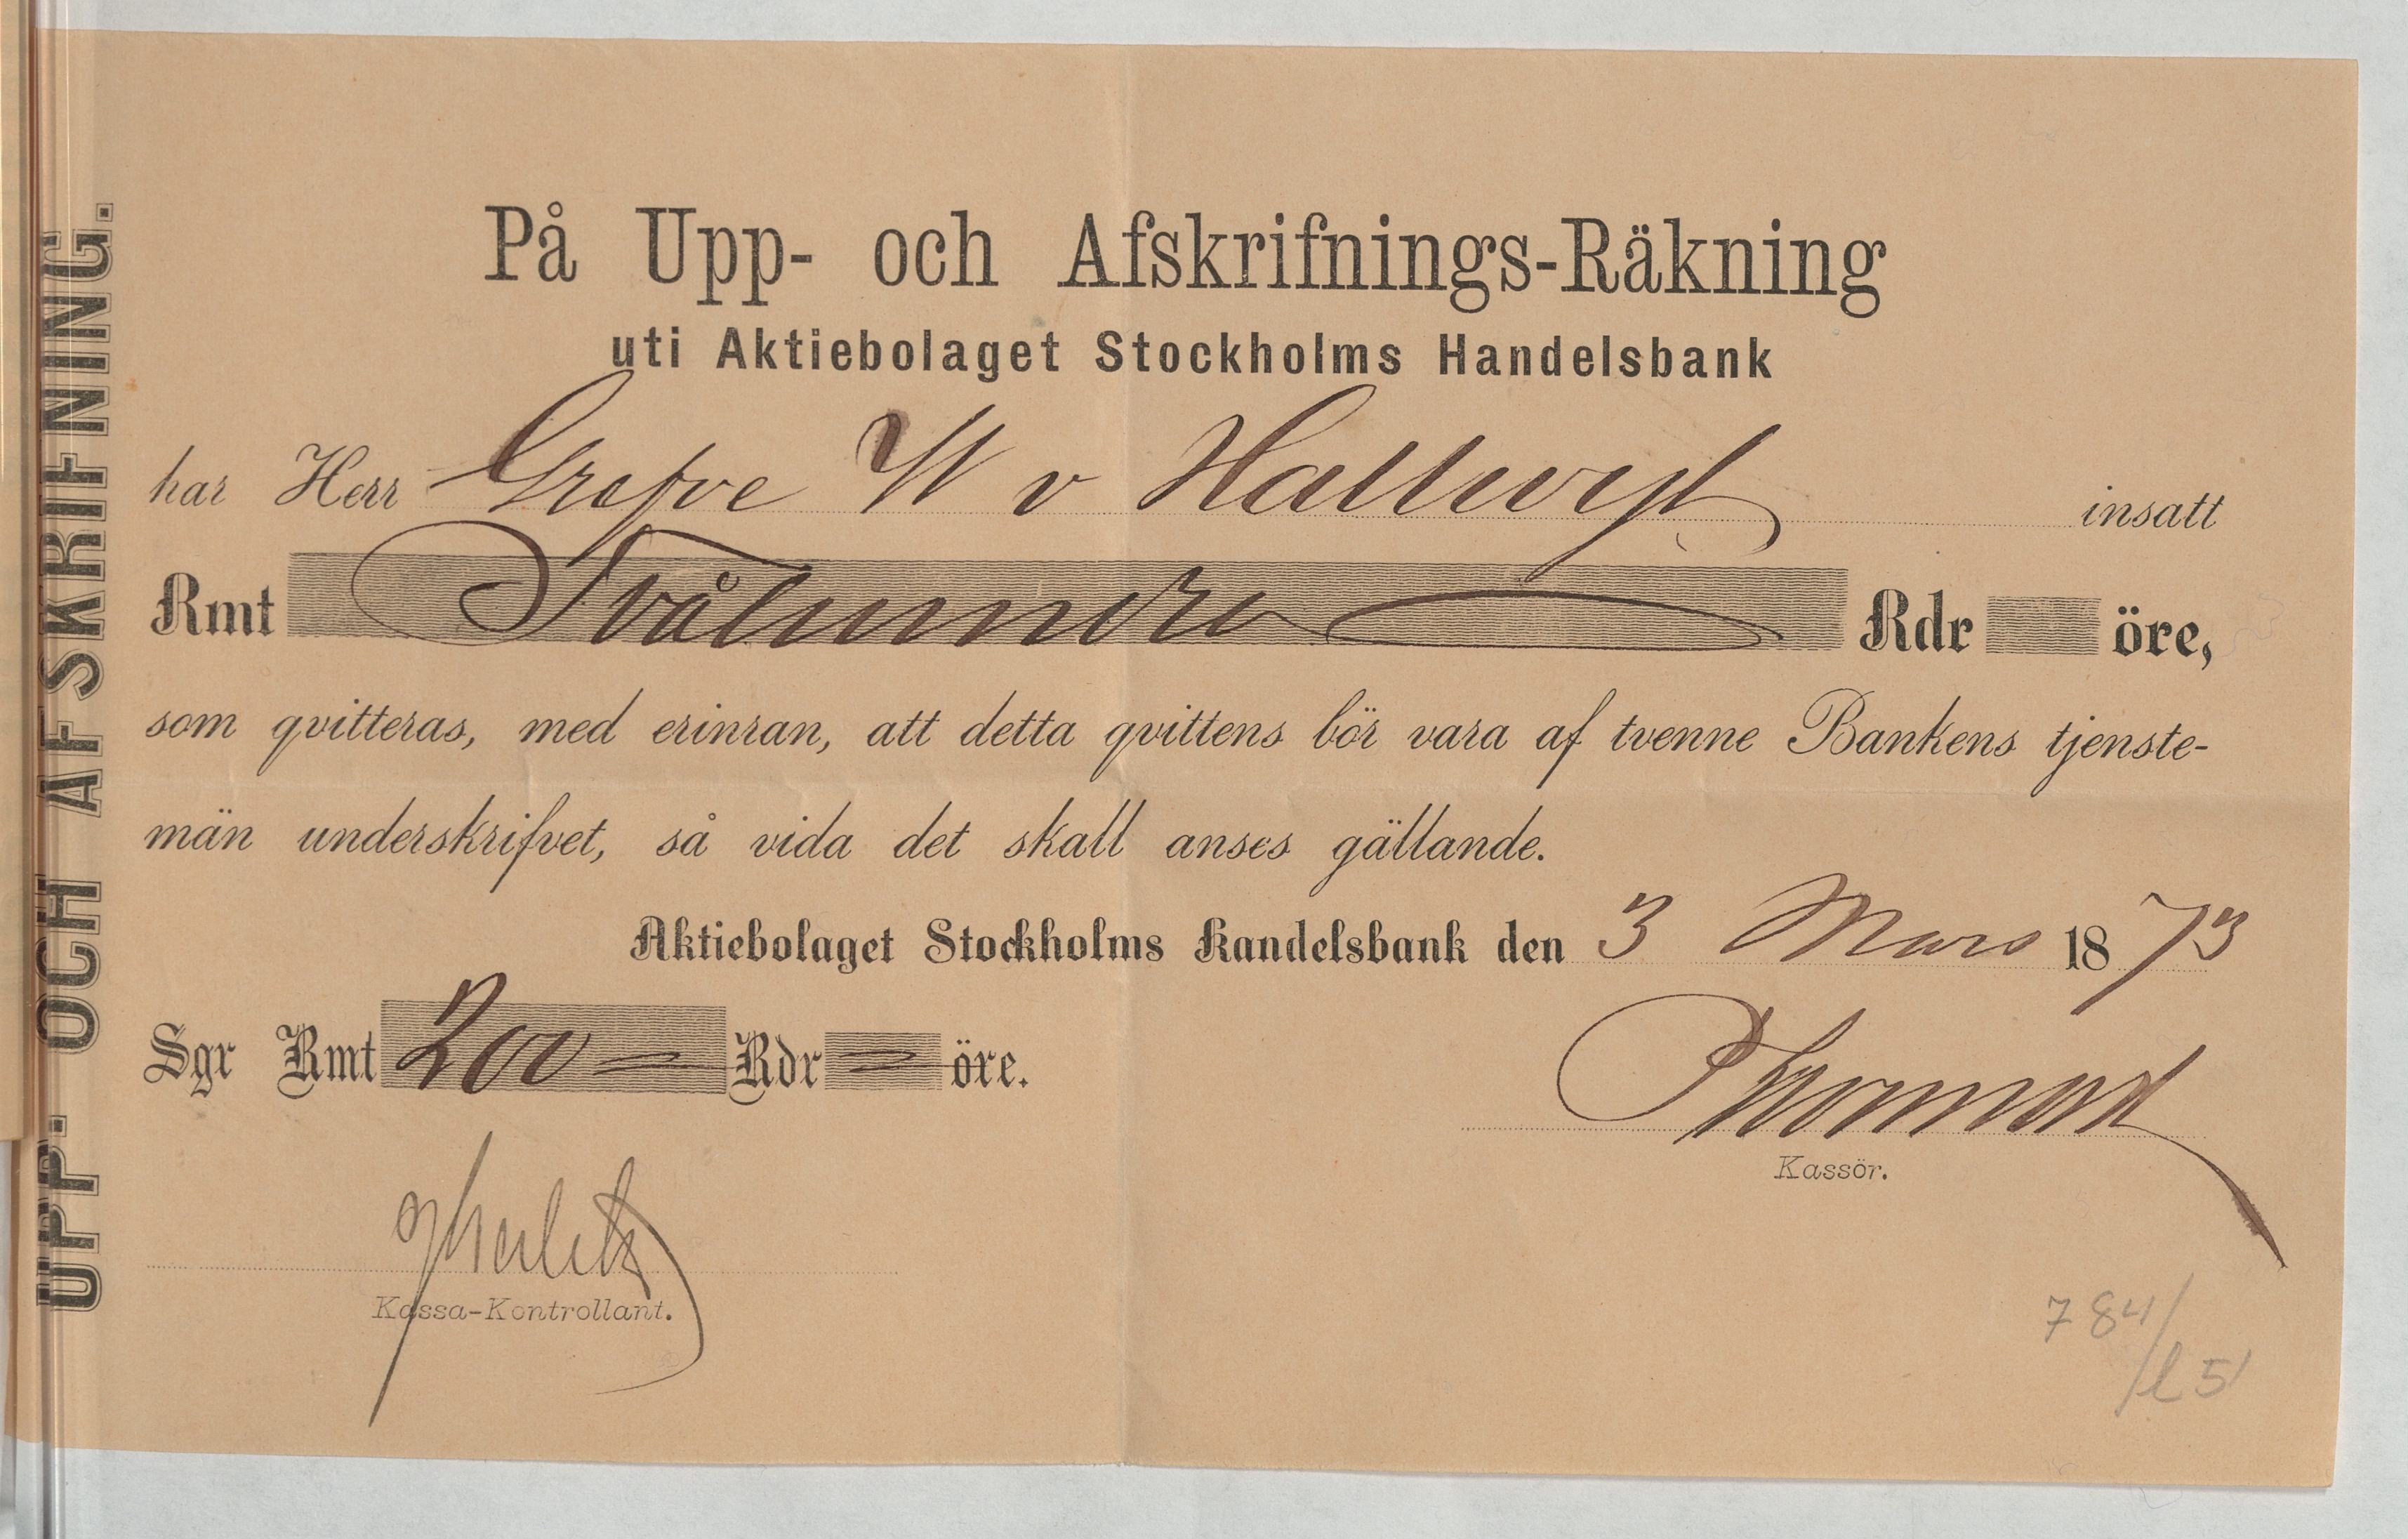 UPP- OCH AFSKRIFNING.
På Upp- och Afskrifnings-Räkning
uti Aktiebolaget Stockholms Handelsbank
har Herr Grefve W v Hallwyl insatt
Rmt Tvåhundra Rdr öre,
som qvitteras, med erinran, att detta qvittens bör vara af tvenne Bankens tjenste-
män underskrifvet, så vida det skall anses gällande.
Aktiebolaget Stockholms Handelsbank den 3 Mars 1873
Sgr Rmt 200 = Rdr = öre.
Kassör.
Kassa-Kontrollant.
784/
/l 5